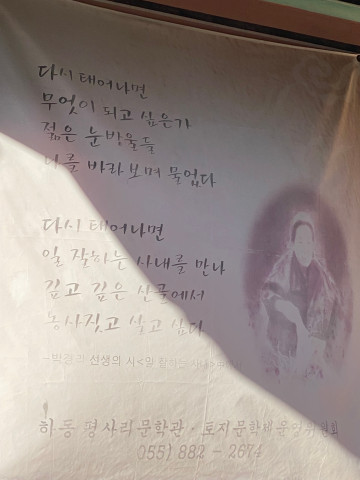 다시 태어나면
무엇이 되고 싶은가
젊은 눈망울들
나를 바라보며 물었다
다시 태어나면
일 잘하는 사내를 만나
깊고 깊은 산골에서
농사짓고 살고 싶다
-박경리 선생의 시<일 잘하는 사내
하동 평사리문학관 · 토지문학제운영위원회
055) 882 - 2674